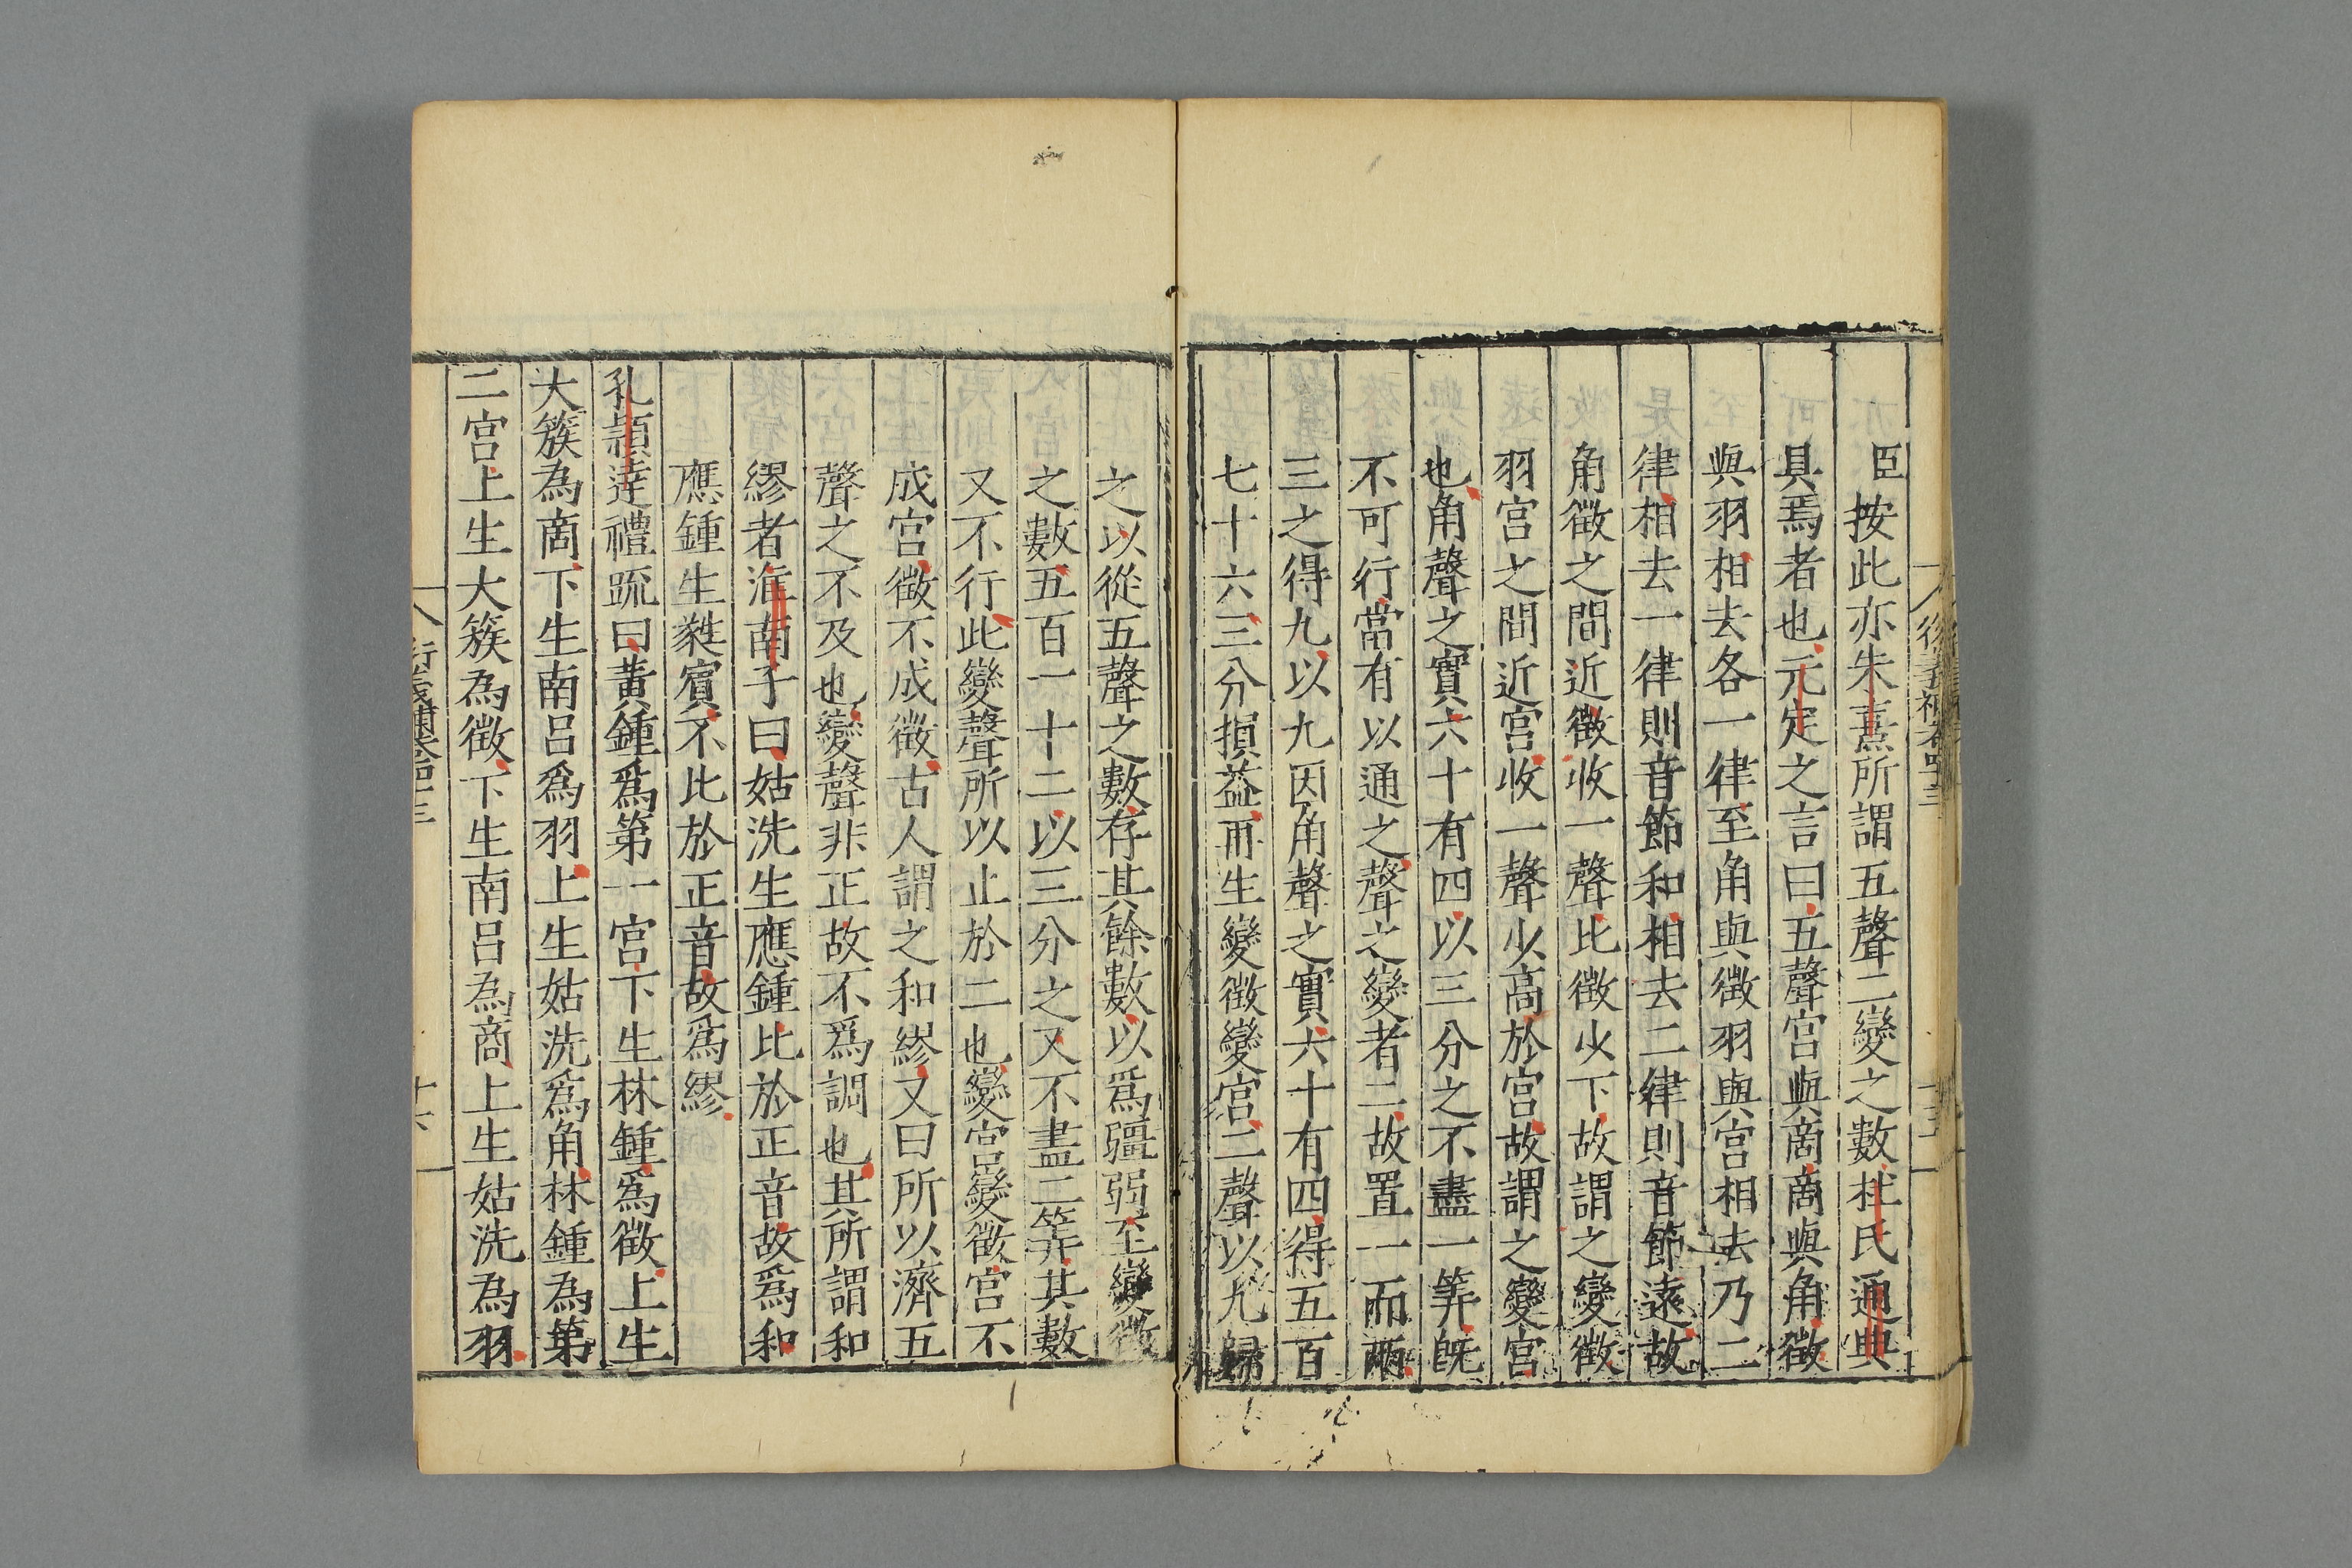 臣按此亦朱熹所謂五聲二變之數杜氏通典
具焉者也元定之言曰五聲宮與商商與角徵
與羽相去各一律至角與徵羽與宮相去乃二
律相去一律則音節和相去二律則音節遠故
角徵之間近徵收一聲比徵少下故謂之變徵
羽宮之間近宮收一聲少高於宮故謂之變宮
也角聲之實六十有四以三分之不盡一筭旣
不可行當有以通之聲之變者二故置一而兩
三之得九以九因角聲之實六十有四得五百
七十六三分損益再生變徵變宮二聲以九歸
之以從五聲之數存其餘數以爲彊弱至變徵
之數五百一十二以三分之又不盡二筭其數
又不行此變聲所以止於二也變宮變徵宮不
成宮徵不成徵古人謂之和繆又曰所以濟五
聲之不及也變聲非正故不爲調也其所謂和
繆者淮南子曰姑洗生應鍾比於正音故爲和
應鍾生蕤賓不比於正音故爲繆
孔頴達禮疏曰黃鍾爲第一宮下生林鍾爲徵上生
大簇為商下生南呂爲羽上生姑洗爲角林鍾為第
二宮上生大簇為徵下生南呂為商上生姑洗為羽